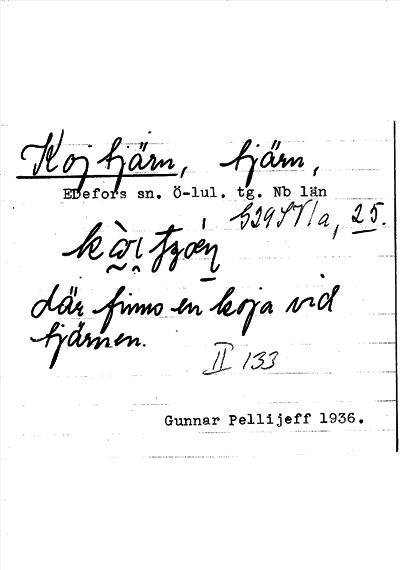 Kojtjärn, tjärn,
Edefors sn. Ö-lul. tg. Nb län
där finns en koja vid
tjärnen.
II 133
Gunnar Pellijeff 1936.